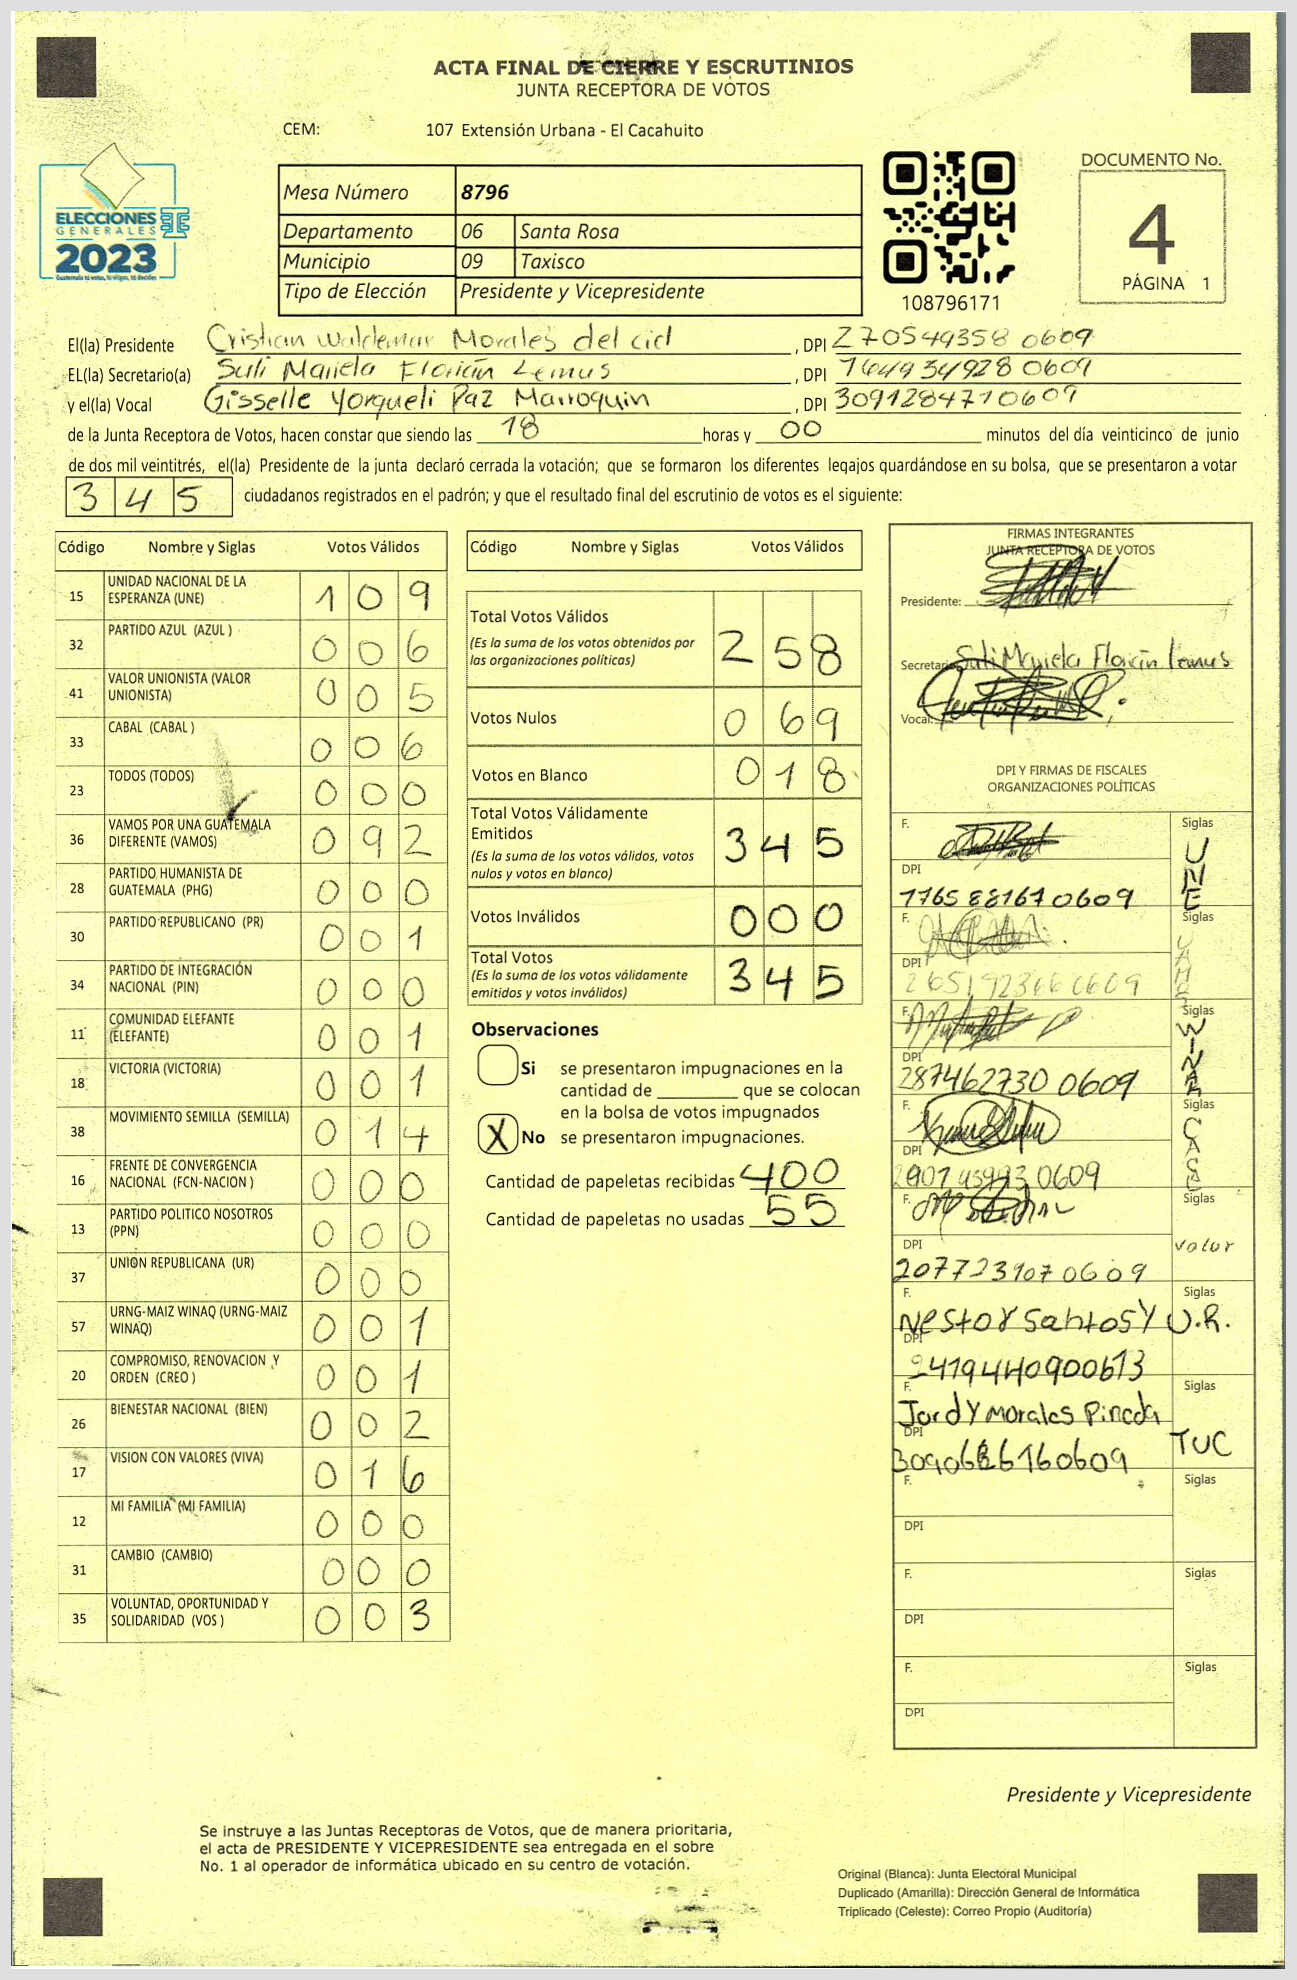 ACTA FINAL DE CIERRE Y ESCRUTINIOS
JUNTA RECEPTORA DE VOTOS
CEM: 107 Extensión Urbana - El Cacahuito
ELECCIONES
GENERALES
2023
Mesa Número 8796
Departamento 06 Santa Rosa
Municipio 09 Taxisco
Tipo de Elección Presidente y Vicepresidente
108796171
DOCUMENTO No.
4
PÁGINA 1
El(la) Presidente Cristian Waldemar Morales del cid , DPI 270549358 0609
EL(la) Secretario(a) Suli Mariela Florián Lemus , DPI 1649349280609
y el(la) Vocal Gisselle Yorqueli Paz Marroquin , DPI 3091284710609
de la Junta Receptora de Votos, hacen constar que siendo las 18 horas y 00 minutos del día veinticinco de junio
de dos mil veintitrés, el(la) Presidente de la junta declaró cerrada la votación; que se formaron los diferentes legajos guardándose en su bolsa, que se presentaron a votar
345 ciudadanos registrados en el padrón; y que el resultado final del escrutinio de votos es el siguiente:
Código Nombre y Siglas Votos Válidos
15 UNIDAD NACIONAL DE LA ESPERANZA (UNE) 109
32 PARTIDO AZUL (AZUL ) 006
41 VALOR UNIONISTA (VALOR UNIONISTA) 005
33 CABAL (CABAL ) 006
23 TODOS (TODOS) 000
36 VAMOS POR UNA GUATEMALA DIFERENTE (VAMOS) 092
28 PARTIDO HUMANISTA DE GUATEMALA (PHG) 000
30 PARTIDO REPUBLICANO (PR) 001
34 PARTIDO DE INTEGRACIÓN NACIONAL (PIN) 000
11 COMUNIDAD ELEFANTE (ELEFANTE) 001
18 VICTORIA (VICTORIA) 001
38 MOVIMIENTO SEMILLA (SEMILLA) 014
16 FRENTE DE CONVERGENCIA NACIONAL (FCN-NACION ) 000
13 PARTIDO POLITICO NOSOTROS (PPN) 000
37 UNION REPUBLICANA (UR) 000
57 URNG-MAIZ WINAQ (URNG-MAIZ WINAQ) 001
20 COMPROMISO, RENOVACION Y ORDEN (CREO ) 001
26 BIENESTAR NACIONAL (BIEN) 002
17 VISION CON VALORES (VIVA) 016
12 MI FAMILIA (MI FAMILIA) 000
31 CAMBIO (CAMBIO) 000
35 VOLUNTAD, OPORTUNIDAD Y SOLIDARIDAD (VOS ) 003
Código Nombre y Siglas Votos Válidos
Total Votos Válidos 258
(Es la suma de los votos obtenidos por
las organizaciones políticas)
Votos Nulos 069
Votos en Blanco 018
Total Votos Válidamente
Emitidos 345
(Es la suma de los votos válidos, votos
nulos y votos en blanco)
Votos Inválidos 000
Total Votos 345
(Es la suma de los votos válidamente
emitidos y votos inválidos)
Observaciones
Si se presentaron impugnaciones en la
cantidad de ________ que se colocan
en la bolsa de votos impugnados
X No se presentaron impugnaciones.
Cantidad de papeletas recibidas 400
Cantidad de papeletas no usadas 55
FIRMAS INTEGRANTES
JUNTA RECEPTORA DE VOTOS
Presidente:
Secretario Suli Mariela Florián Lemus
Vocal:
DPI Y FIRMAS DE FISCALES
ORGANIZACIONES POLÍTICAS
F. Siglas UNE
DPI
1765881670609
F. Siglas
DPI
F. Siglas WINAK
DPI
287462730 0609
F. Siglas
DPI
F. Siglas valor
DPI
2077231070609
F. Siglas
Nestor Santos Y U.R.
DPI
2419440900613
F. Siglas
Jordy Morales Pineda
DPI TUC
F. Siglas
DPI
F. Siglas
DPI
F. Siglas
DPI
Presidente y Vicepresidente
Se instruye a las Juntas Receptoras de Votos, que de manera prioritaria,
el acta de PRESIDENTE Y VICEPRESIDENTE sea entregada en el sobre
No. 1 al operador de informática ubicado en su centro de votación.
Original (Blanca): Junta Electoral Municipal
Duplicado (Amarilla): Dirección General de Informática
Triplicado (Celeste): Correo Propio (Auditoría)